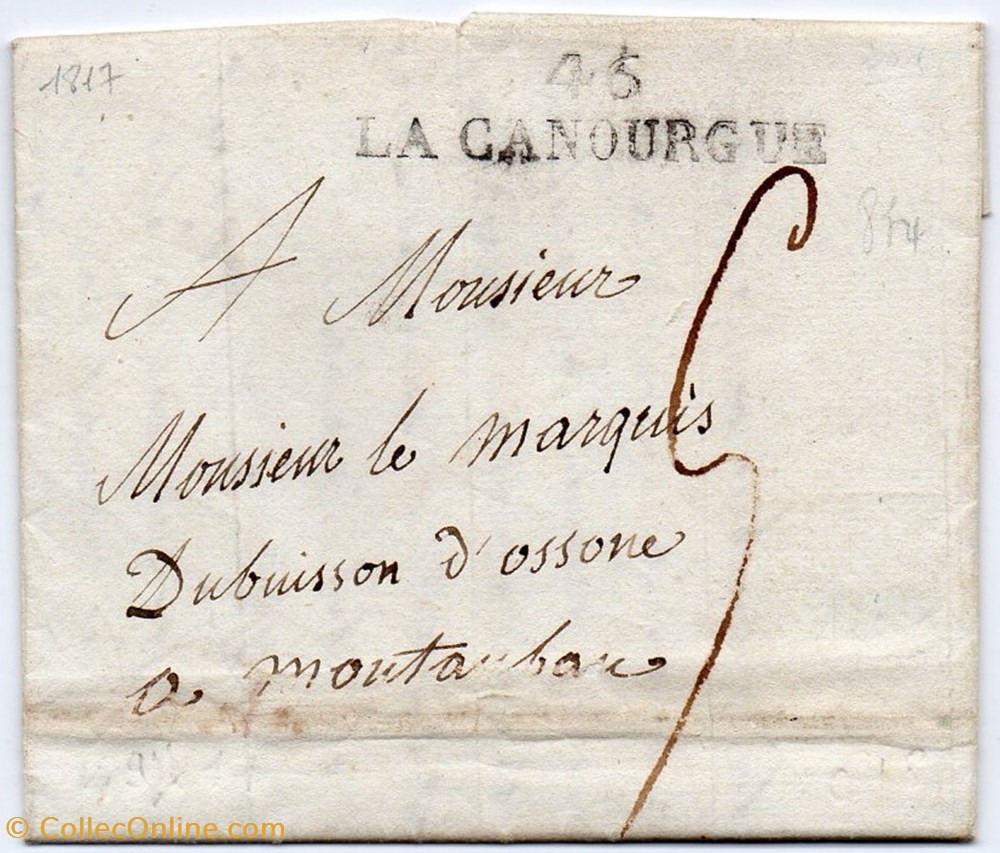 1817
45
LA CANOURGUE
A Monsieur
Monsieur le marquis
Dubuisson d'ossone
a montauban
© CollecOnline.com